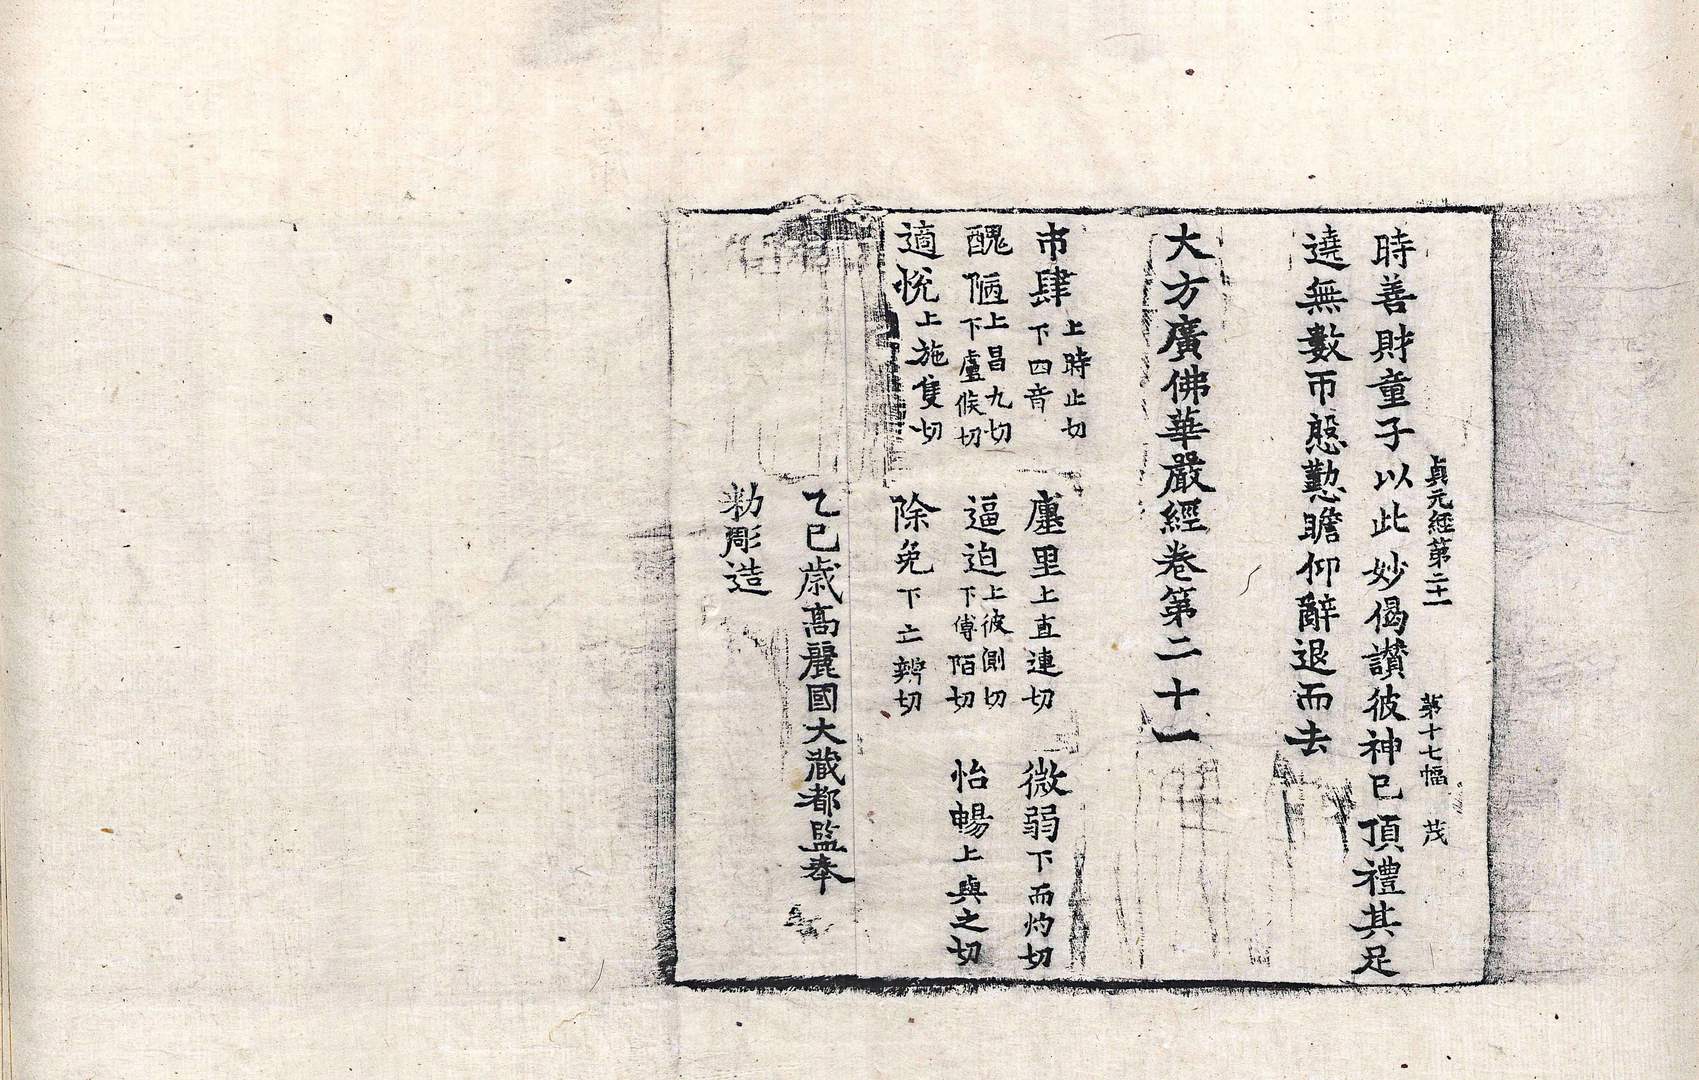 貞元經第二十一 第十七幅 茂
時善財童子以此妙偈讃彼神已頂禮其足
遶無數帀慇懃瞻仰辭退而去
大方廣佛華嚴經卷第二十一
市肆上時止切下四音 廛里上直連切 微弱下而灼切
醜陋上昌九切下盧候切 逼迫上彼側切下傅陌切 怡暢上與之切
適悅上施隻切 除免下亡辨切
乙巳歲高麗國大藏都監奉
勑彫造